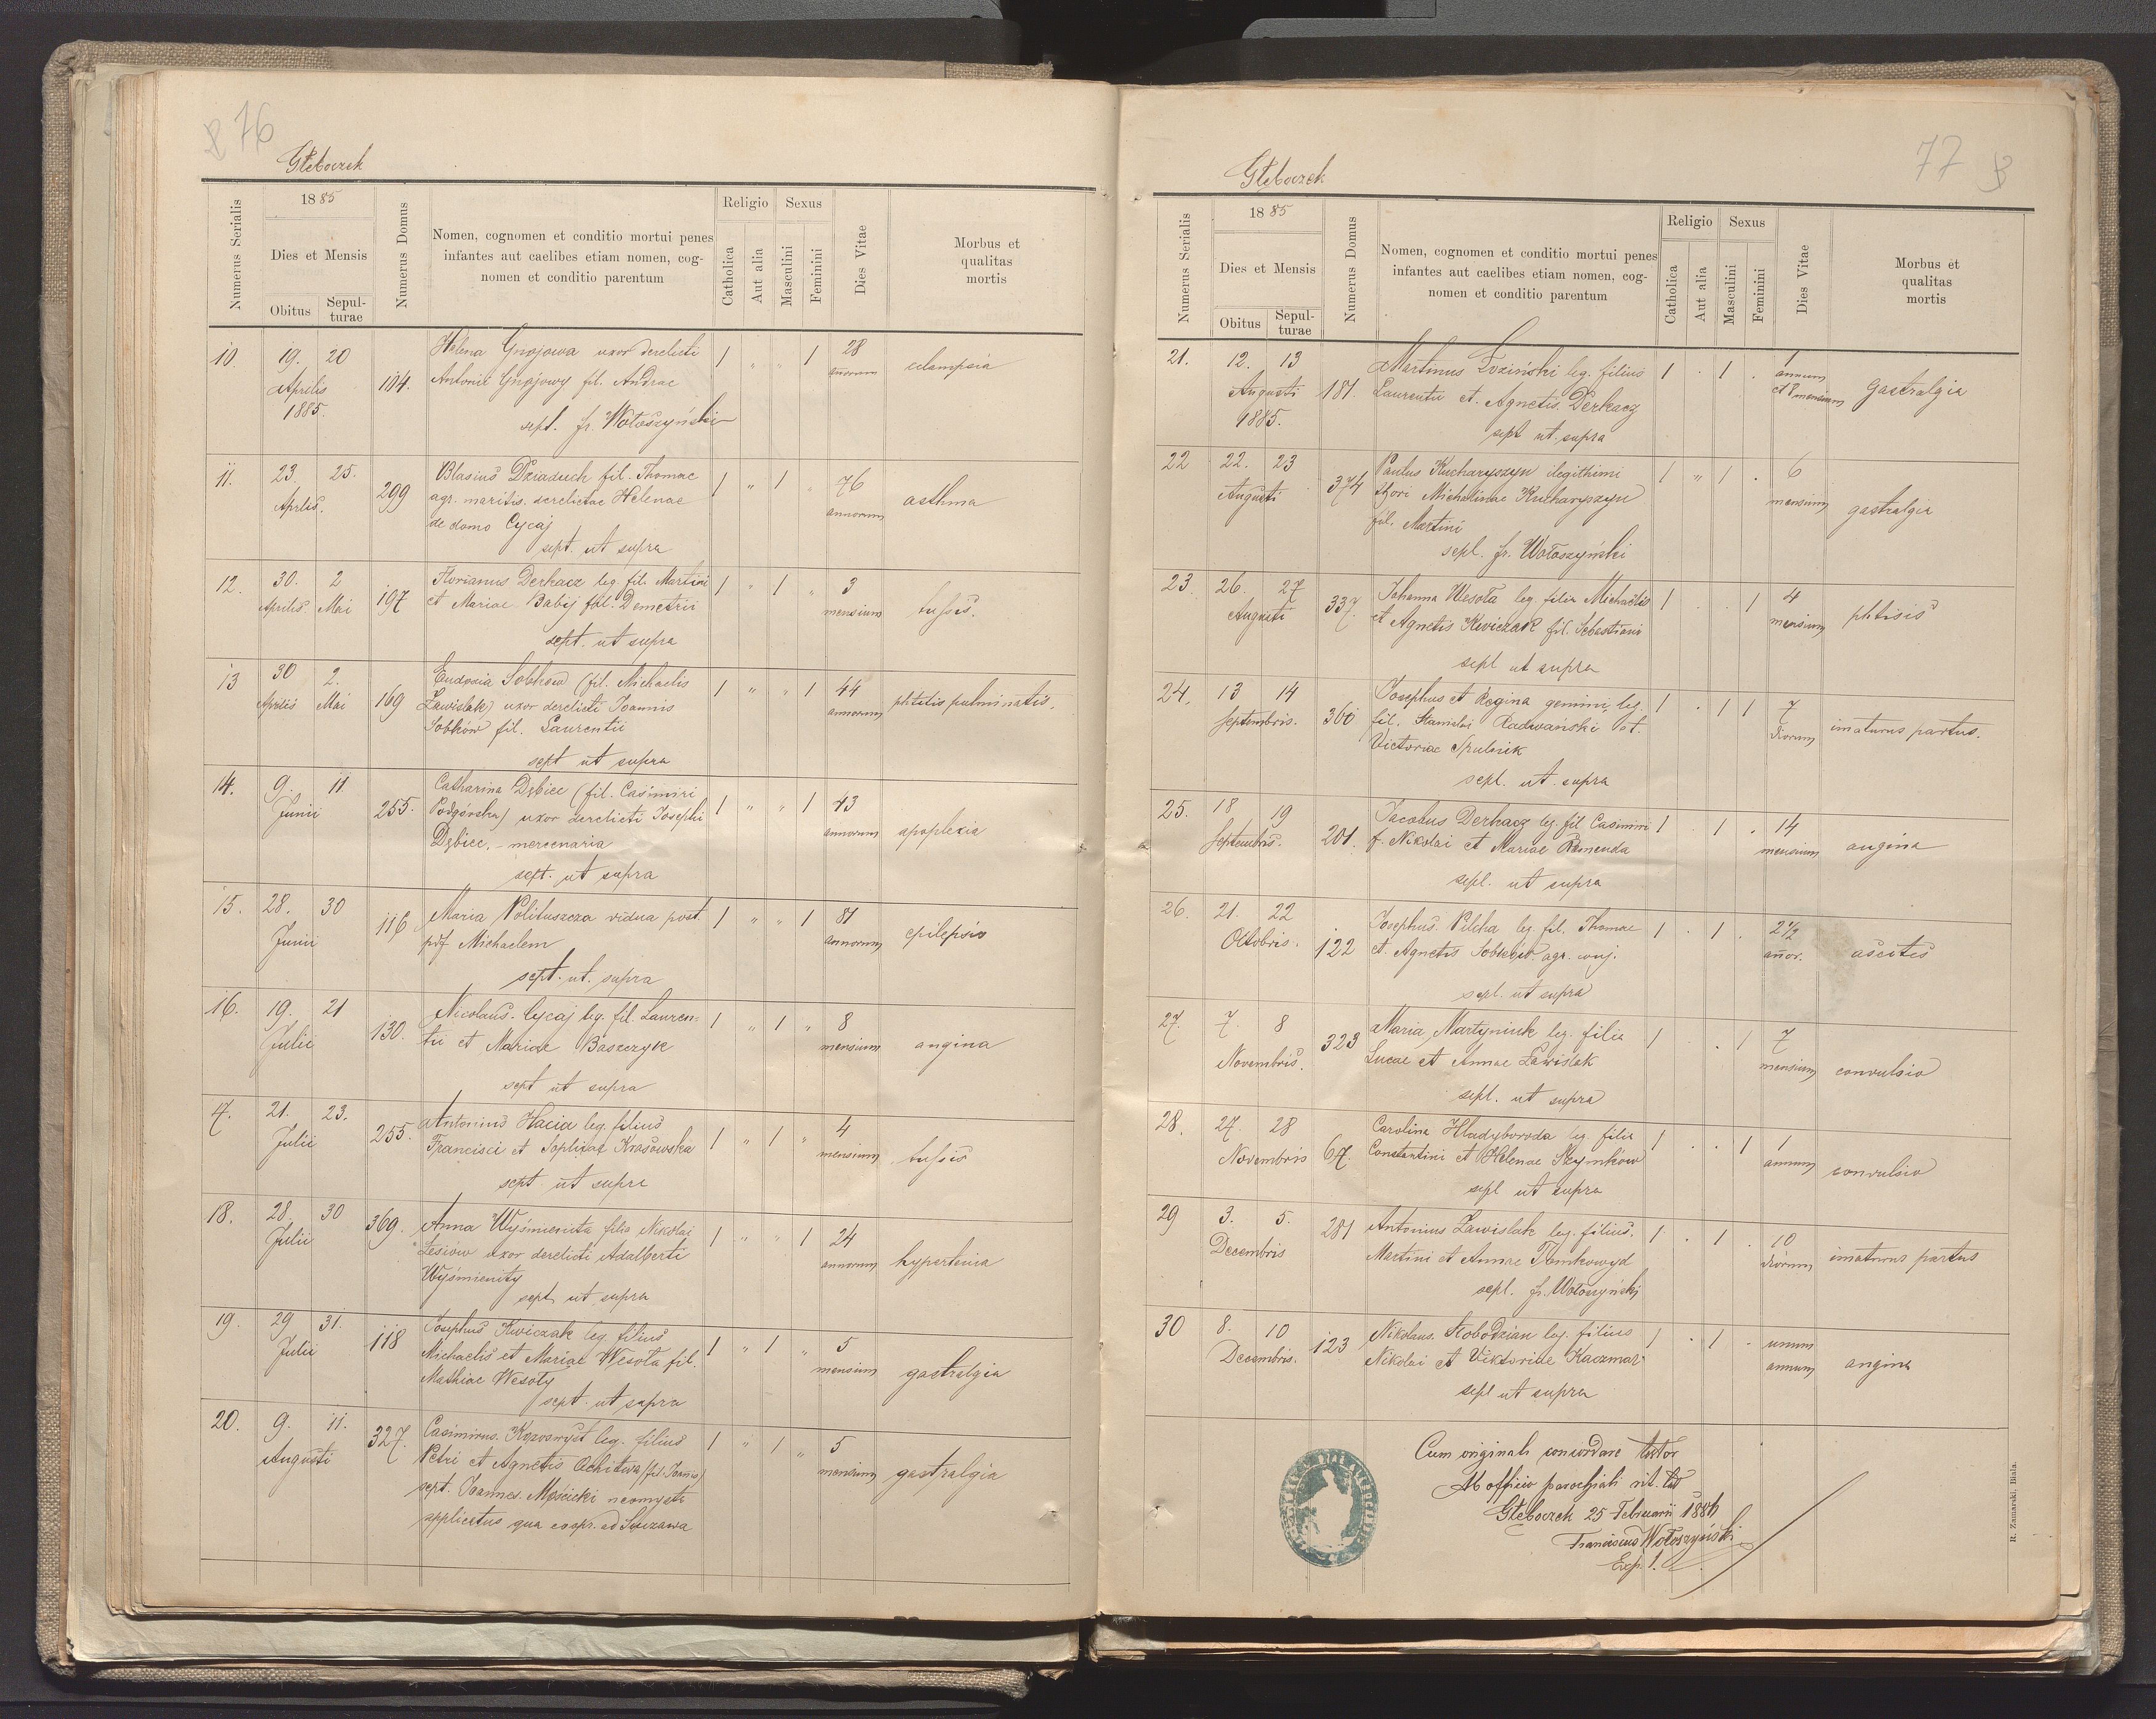 76
Głeboczek
Numerus Serialis
1885
Dies et Mensis
Obitus
Sepulturae
Numerus Domus
Nomen, cognomen et conditio mortui penes
infantes aut caelibes etiam nomen, cog-
nomen et conditio parentum
Religio
Catholica
Aut alia
Sexus
Masculini
Feminini
Dies Vitae
Morbus et
qualitas
mortis
10. 19. 20 Aprilis 1885. 104.
Helena Gnojowa uxor derelicti
Antonii Gnojowy fil. Andrae
sept. fr. Wołoszyński
1 " " 1 28 annorum eclampsia
11. 23. 25. Aprilis. 299
Blasius Dziaduch fil. Thomae
agr. maritis. derelictae Helenae
de domo Cycaj
sept. ut supra
1 " 1 " 76 annorum asthma
12. 30. Aprilis 2 Mai 197
Florianus Derkacz leg. fil. Martini
et Mariae Babij fil. Demetrii
sept. ut supra
1 " 1 " 3 mensium tussis.
13 30 Aprilis 2. Mai 169
Eudoxia Sobkow (fil. Michaelis
Zawislak) uxor derelicti Joannis
Sobków fil. Laurentii
sept ut supra
1 " " 1 44 annorum
14. 9. 11 Junii 255.
Catharina Dębicc (fil. Casimiri
Podgórska) uxor derelicti Josephi
Dębicc, - mercenaria
sept. ut supra
1 " " 1 43 annorum apoplexia
15. 28. 30 Junii 116
Maria Polituszcza vidua post
pdf Michaelem
sept. ut. supra
1 " " 1 81 annorum epilepsis
16. 19. 21 Julii 130.
Nicolaus Cycaj leg. fil. Lauren-
tii et Mariae Baszczyk
sept ut supra
1 " 1 " 8 mensium angina
17. 21. 23. Julii 255.
Antonius Hacia leg. filius
Francisci et Sophiae Krasowska
sept ut supra
1 " 1 " 4 mensium tussis
18. 28. 30 Julii 369.
Anna Wyśmienita filia Nikolai
Łesiów uxor derelicti Adalberti
Wyśmienity
sept. ut supra
1 " " 1 24 annorum
19. 29 31. Julii 118
Josephus Kwiczak leg. filius
Michaelis et Mariae Wesoła fil.
Mathiae Wesoły
sept. ut supra
1 " 1 " 5 mensium gastralgia
20. 9. 11. Augusti 327.
Casimirus leg. filius
Petri et Agnetis Ochitwa (fil. Joannis)
sept. Joannes Mościcki neomysta
applicatus qua coopr. ad
1 " 1 " 5 mensium gastralgia
77
Głęboczek
Numerus Serialis
1885
Dies et Mensis
Obitus
Sepulturae
Numerus Domus
Nomen, cognomen et conditio mortui penes
infantes aut caelibes etiam nomen, cog-
nomen et conditio parentum
Religio
Catholica
Aut alia
Sexus
Masculini
Feminini
Dies Vitae
Morbus et
qualitas
mortis
21. 12. 13 Augusti 1885. 181.
Martinus Łoziński leg. filius
Laurentii et. Agnetis Derkacz
sept ut supra
1 . 1 . 1 annum et 8 mensium gastralgia
22 22. 23 Augusti 374
Paulus Kucharyszyn ilegithimi
thori Michelinae Kucharyszyn
fil. Martini
sepl. fr. Wołoszyński
1 " 1 . 6 mensium gastralgia
23. 26. 27 Augusti 337.
Johanna Wesoła leg. filia Michaelis
et Agnetis Kwiczak fil. Sebastiani
sepl ut supra
1 . . 1 4 mensium phtisis
24. 13 14 Septembris. 360
Josephus et Regina gemini, leg.
fil. Stanislai Radwański et.
Victoriae Spulnik
sepl. ut. supra
1 . 1 1 7 dierum imaturus partus.
25. 18 19 Septembris. 201.
Jacobus Derkacz leg. fil Casimiri
f. Nikolai et Mariae Remenda
sepl. ut supra
1 . 1 . 14 mensium angina
26. 21. 22 Octobris. 122
Josephus Pilcha leg. fil. Thomae
et. Agnetis Sobków agr. conj.
sepl. ut supra
1 . 1 . 2 1/2 annor. ascites
27. 7. 8 Novembris. 323
Maria Martyniuk leg. filia
Lucae et Annae Zawislak
sepl. ut supra
1 . 1 7 mensium convulsio
28. 27. 28 Novembris 67.
Carolina Hladyboroda leg. filia
Constantini et Helenae Szymków
sepl ut supra
1 . . 1 1 annum convulsio
29 3. 5. Decembris 281
Antonius Zawislak leg. filius.
Martini et Annae Tomkowyd
sepl. fr. Wołoszyński
1. . 1 . 10 dierum imaturus partus
30 8. 10 Decembris. 123
Nikolaus. Słobodzian leg. filius
Nikolai et Viktoriae Kaczmar
sepl ut supra
1 . 1 . unum annum angina
Cum originali concordare testor
Ab officio parochiali rit. lat
Głęboczek 25 Februarii 1886
Franciscus Wołoszyński
Exp.
R. Zamarski. Biala.